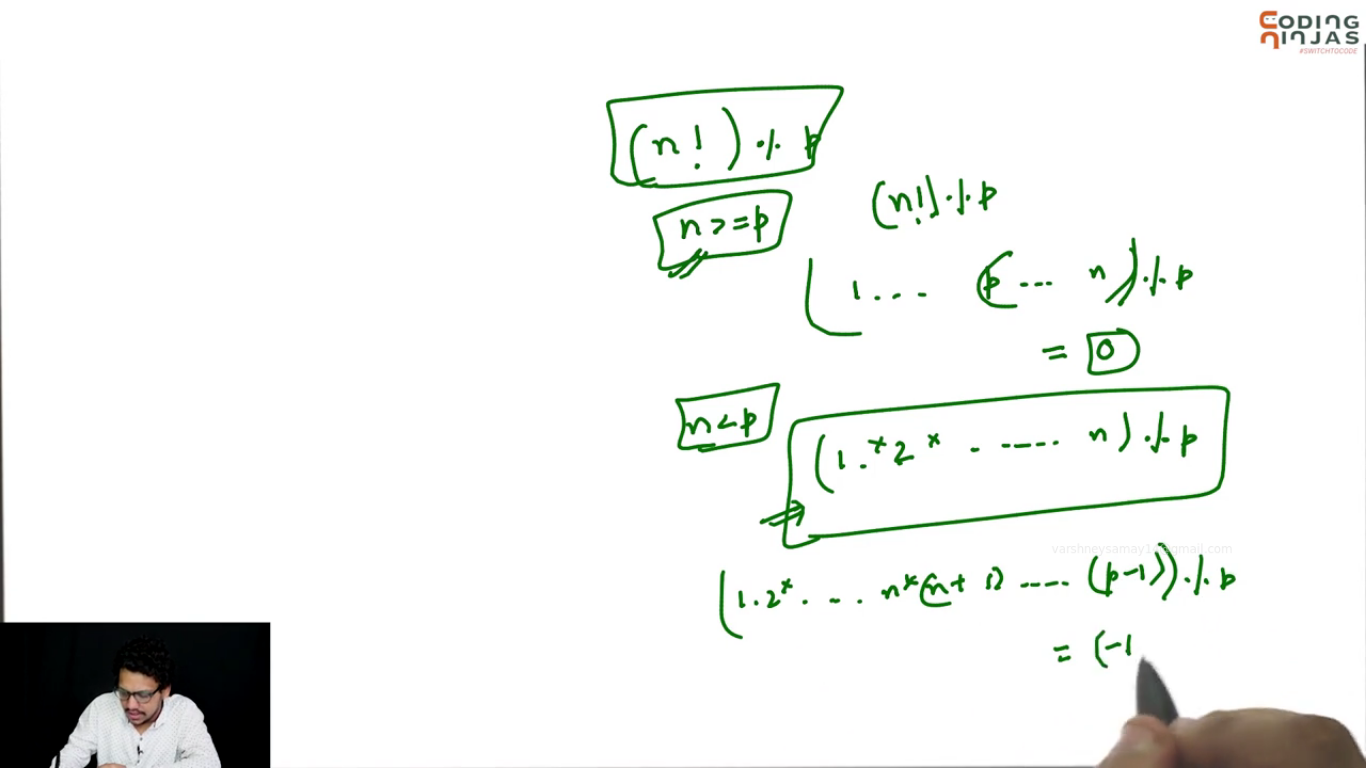 CODING
NINJAS
#SWITCHTOCODE
(n!) % p
n >= p
(n!) % p
(1 . . . p ... n) % p
= 0
n < p
(1 . * 2 * . ..... n) % p
varshneysamay1@gmail.com
(1 . 2 * . . . n * (n + 1) .... (p-1)) % p
= (-1